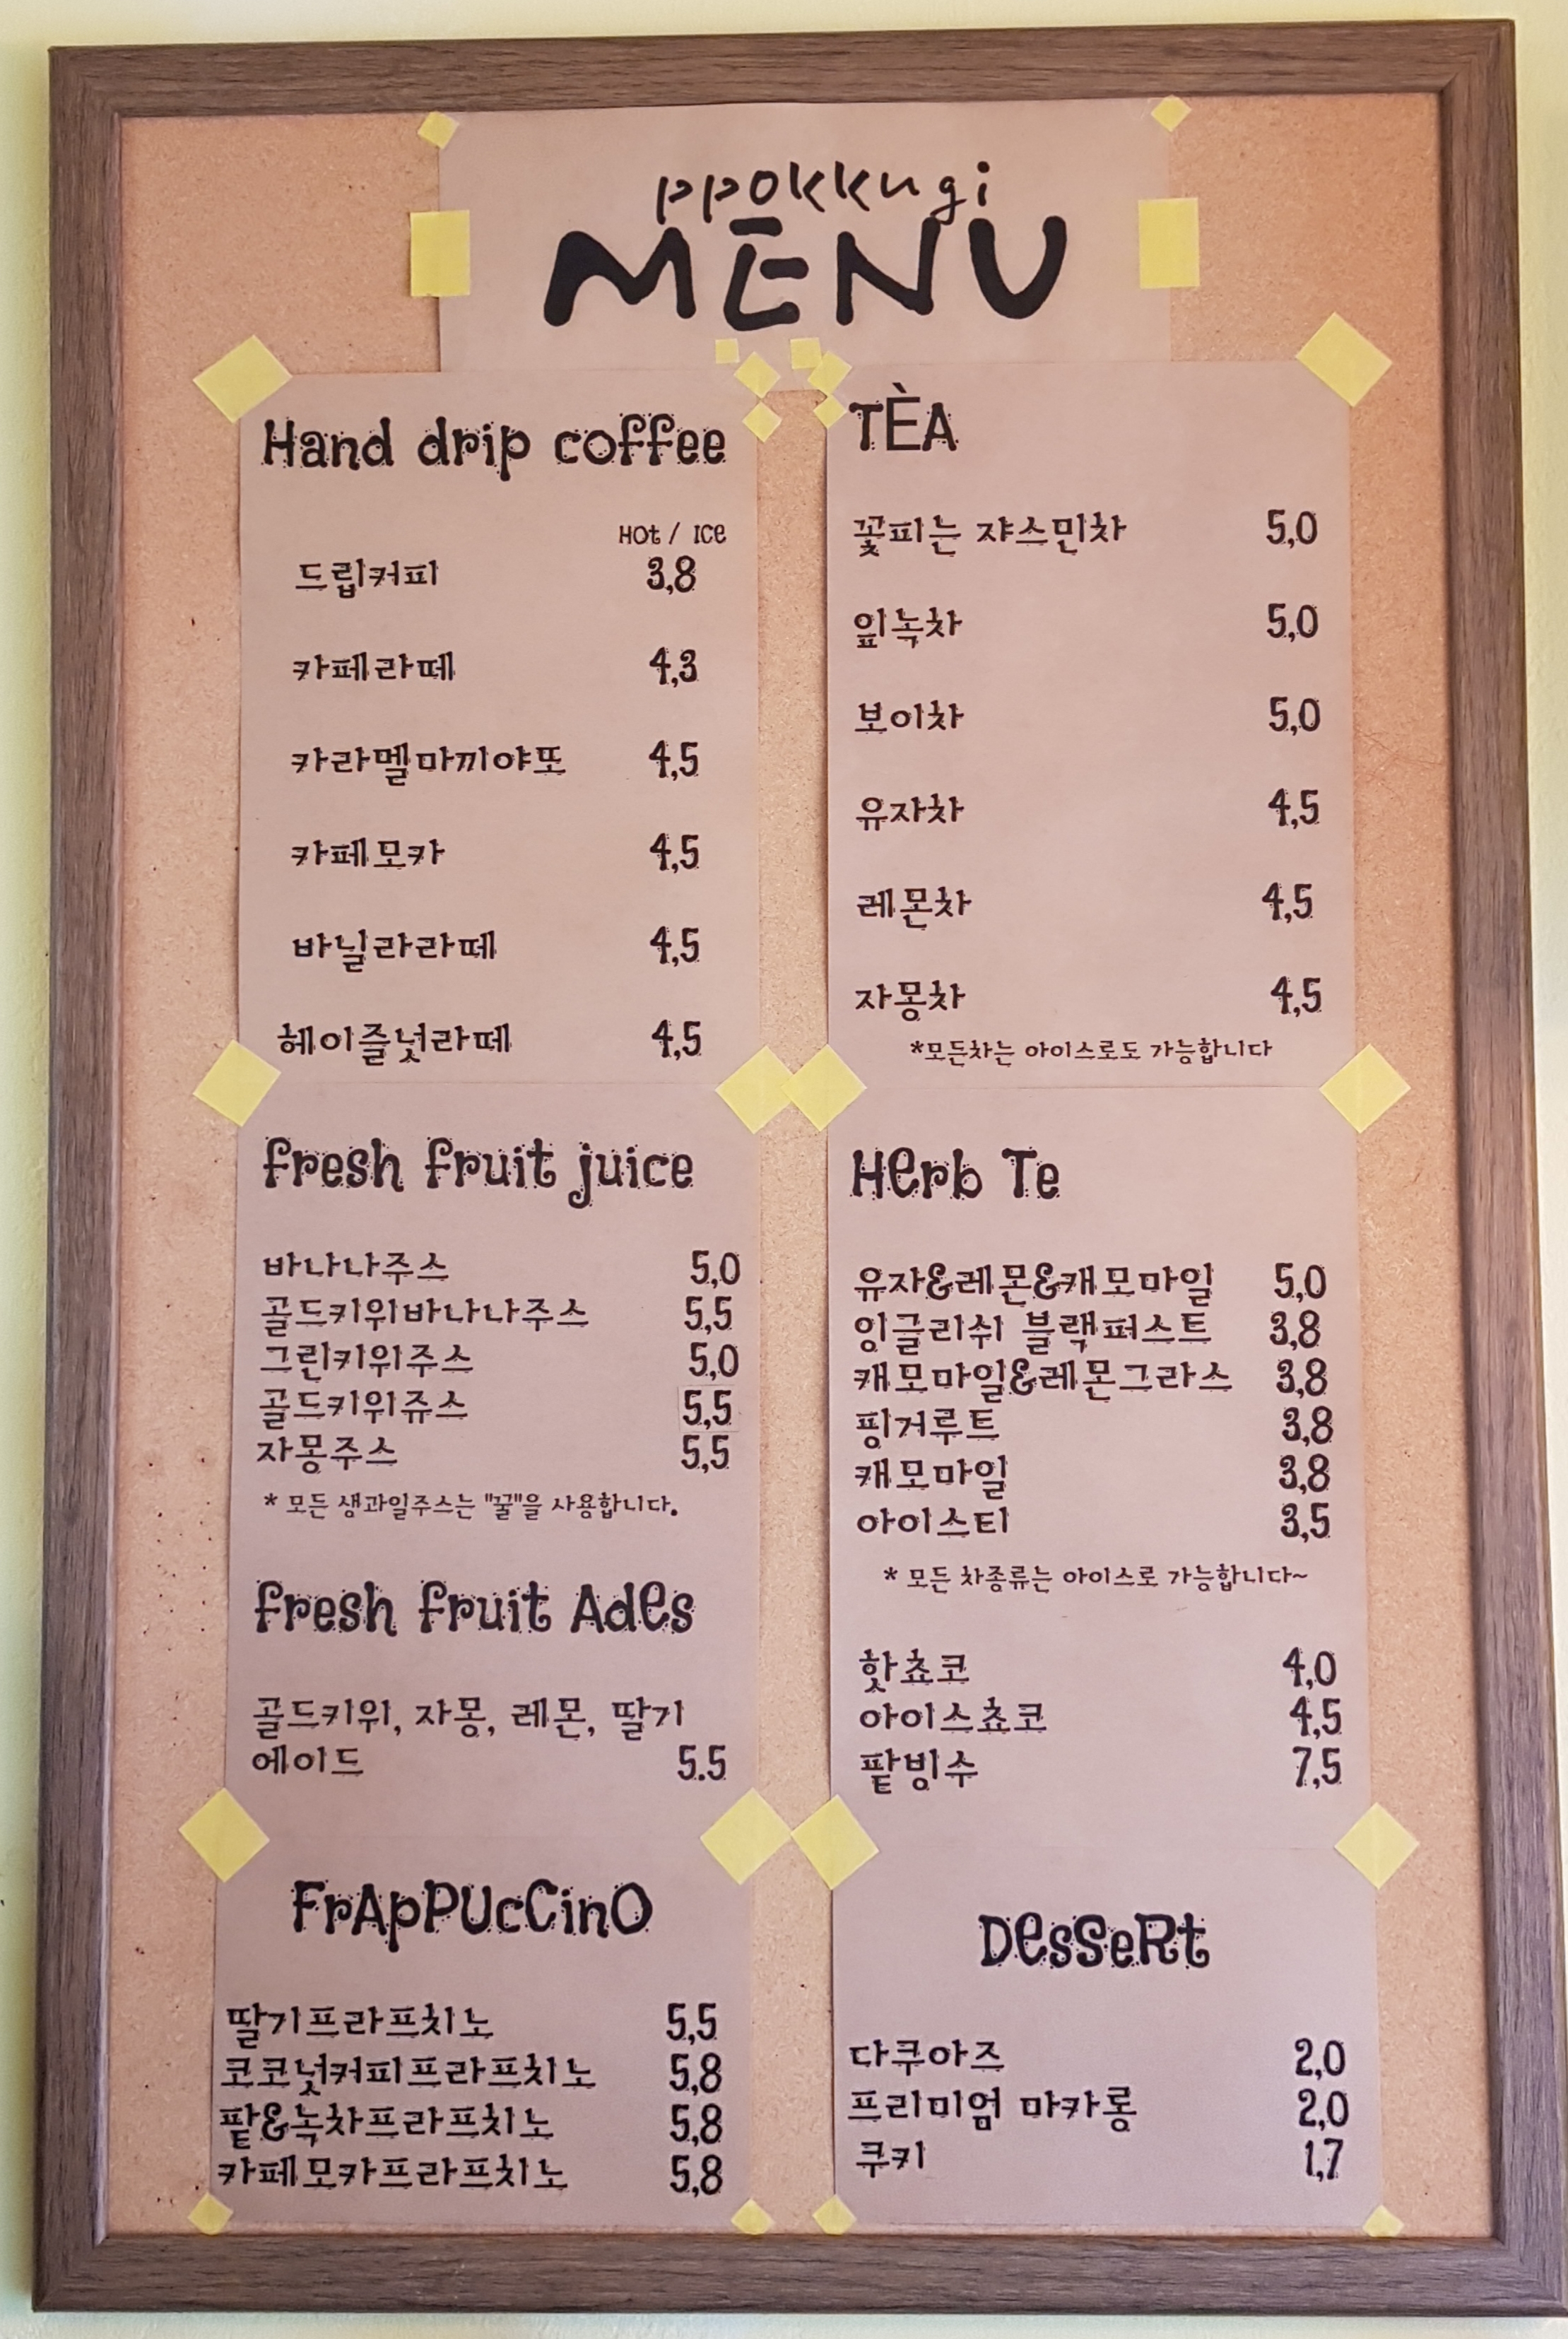 ppokkugi
MENU
Hand drip coffee
Hot / Ice
드립커피 3,8
카페라떼 4,3
카라멜마끼야또 4,5
카페모카 4,5
바닐라라떼 4,5
헤이즐넛라떼 4,5
fresh fruit juice
바나나주스 5,0
골드키위바나나주스 5,5
그린키위주스 5,0
골드키위쥬스 5,5
자몽주스 5,5
* 모든 생과일주스는 "꿀"을 사용합니다.
fresh fruit Ades
골드키위, 자몽, 레몬, 딸기
에이드 5.5
FrApPUcCinO
딸기프라프치노 5,5
코코넛커피프라프치노 5,8
팥&녹차프라프치노 5,8
카페모카프라프치노 5,8
TÈA
꽃피는 쟈스민차 5,0
잎녹차 5,0
보이차 5,0
유자차 4,5
레몬차 4,5
자몽차 4,5
*모든차는 아이스로도 가능합니다
Herb Te
유자&레몬&캐모마일 5,0
잉글리쉬 블랙퍼스트 3,8
캐모마일&레몬그라스 3,8
핑거루트 3,8
캐모마일 3,8
아이스티 3,5
* 모든 차종류는 아이스로 가능합니다~
핫쵸코 4,0
아이스쵸코 4,5
팥빙수 7,5
DesSeRt
다쿠아즈 2,0
프리미엄 마카롱 2,0
쿠키 1,7